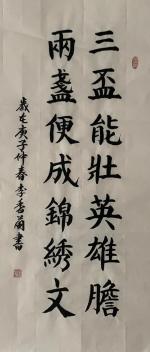 三盃能壯英雄膽
兩盞便成錦綉文
歲在庚子仲春李香蘭書